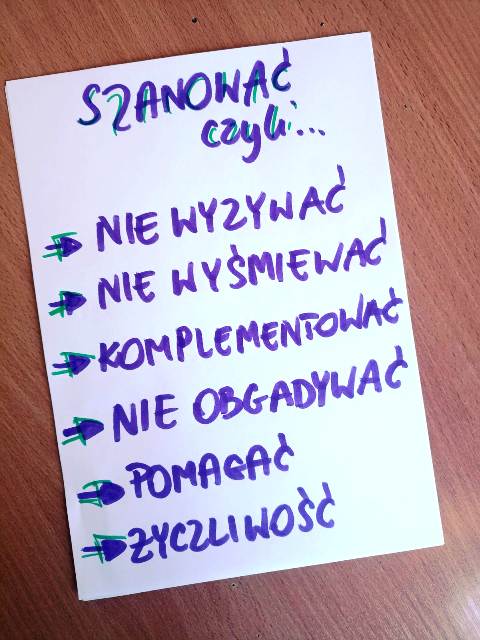 SZANOWAĆ
czyli...
NIE WYZYWAĆ
NIE WYŚMIEWAĆ
KOMPLEMENTOWAĆ
NIE OBGADYWAĆ
POMAGAĆ
ŻYCZLIWOŚĆ